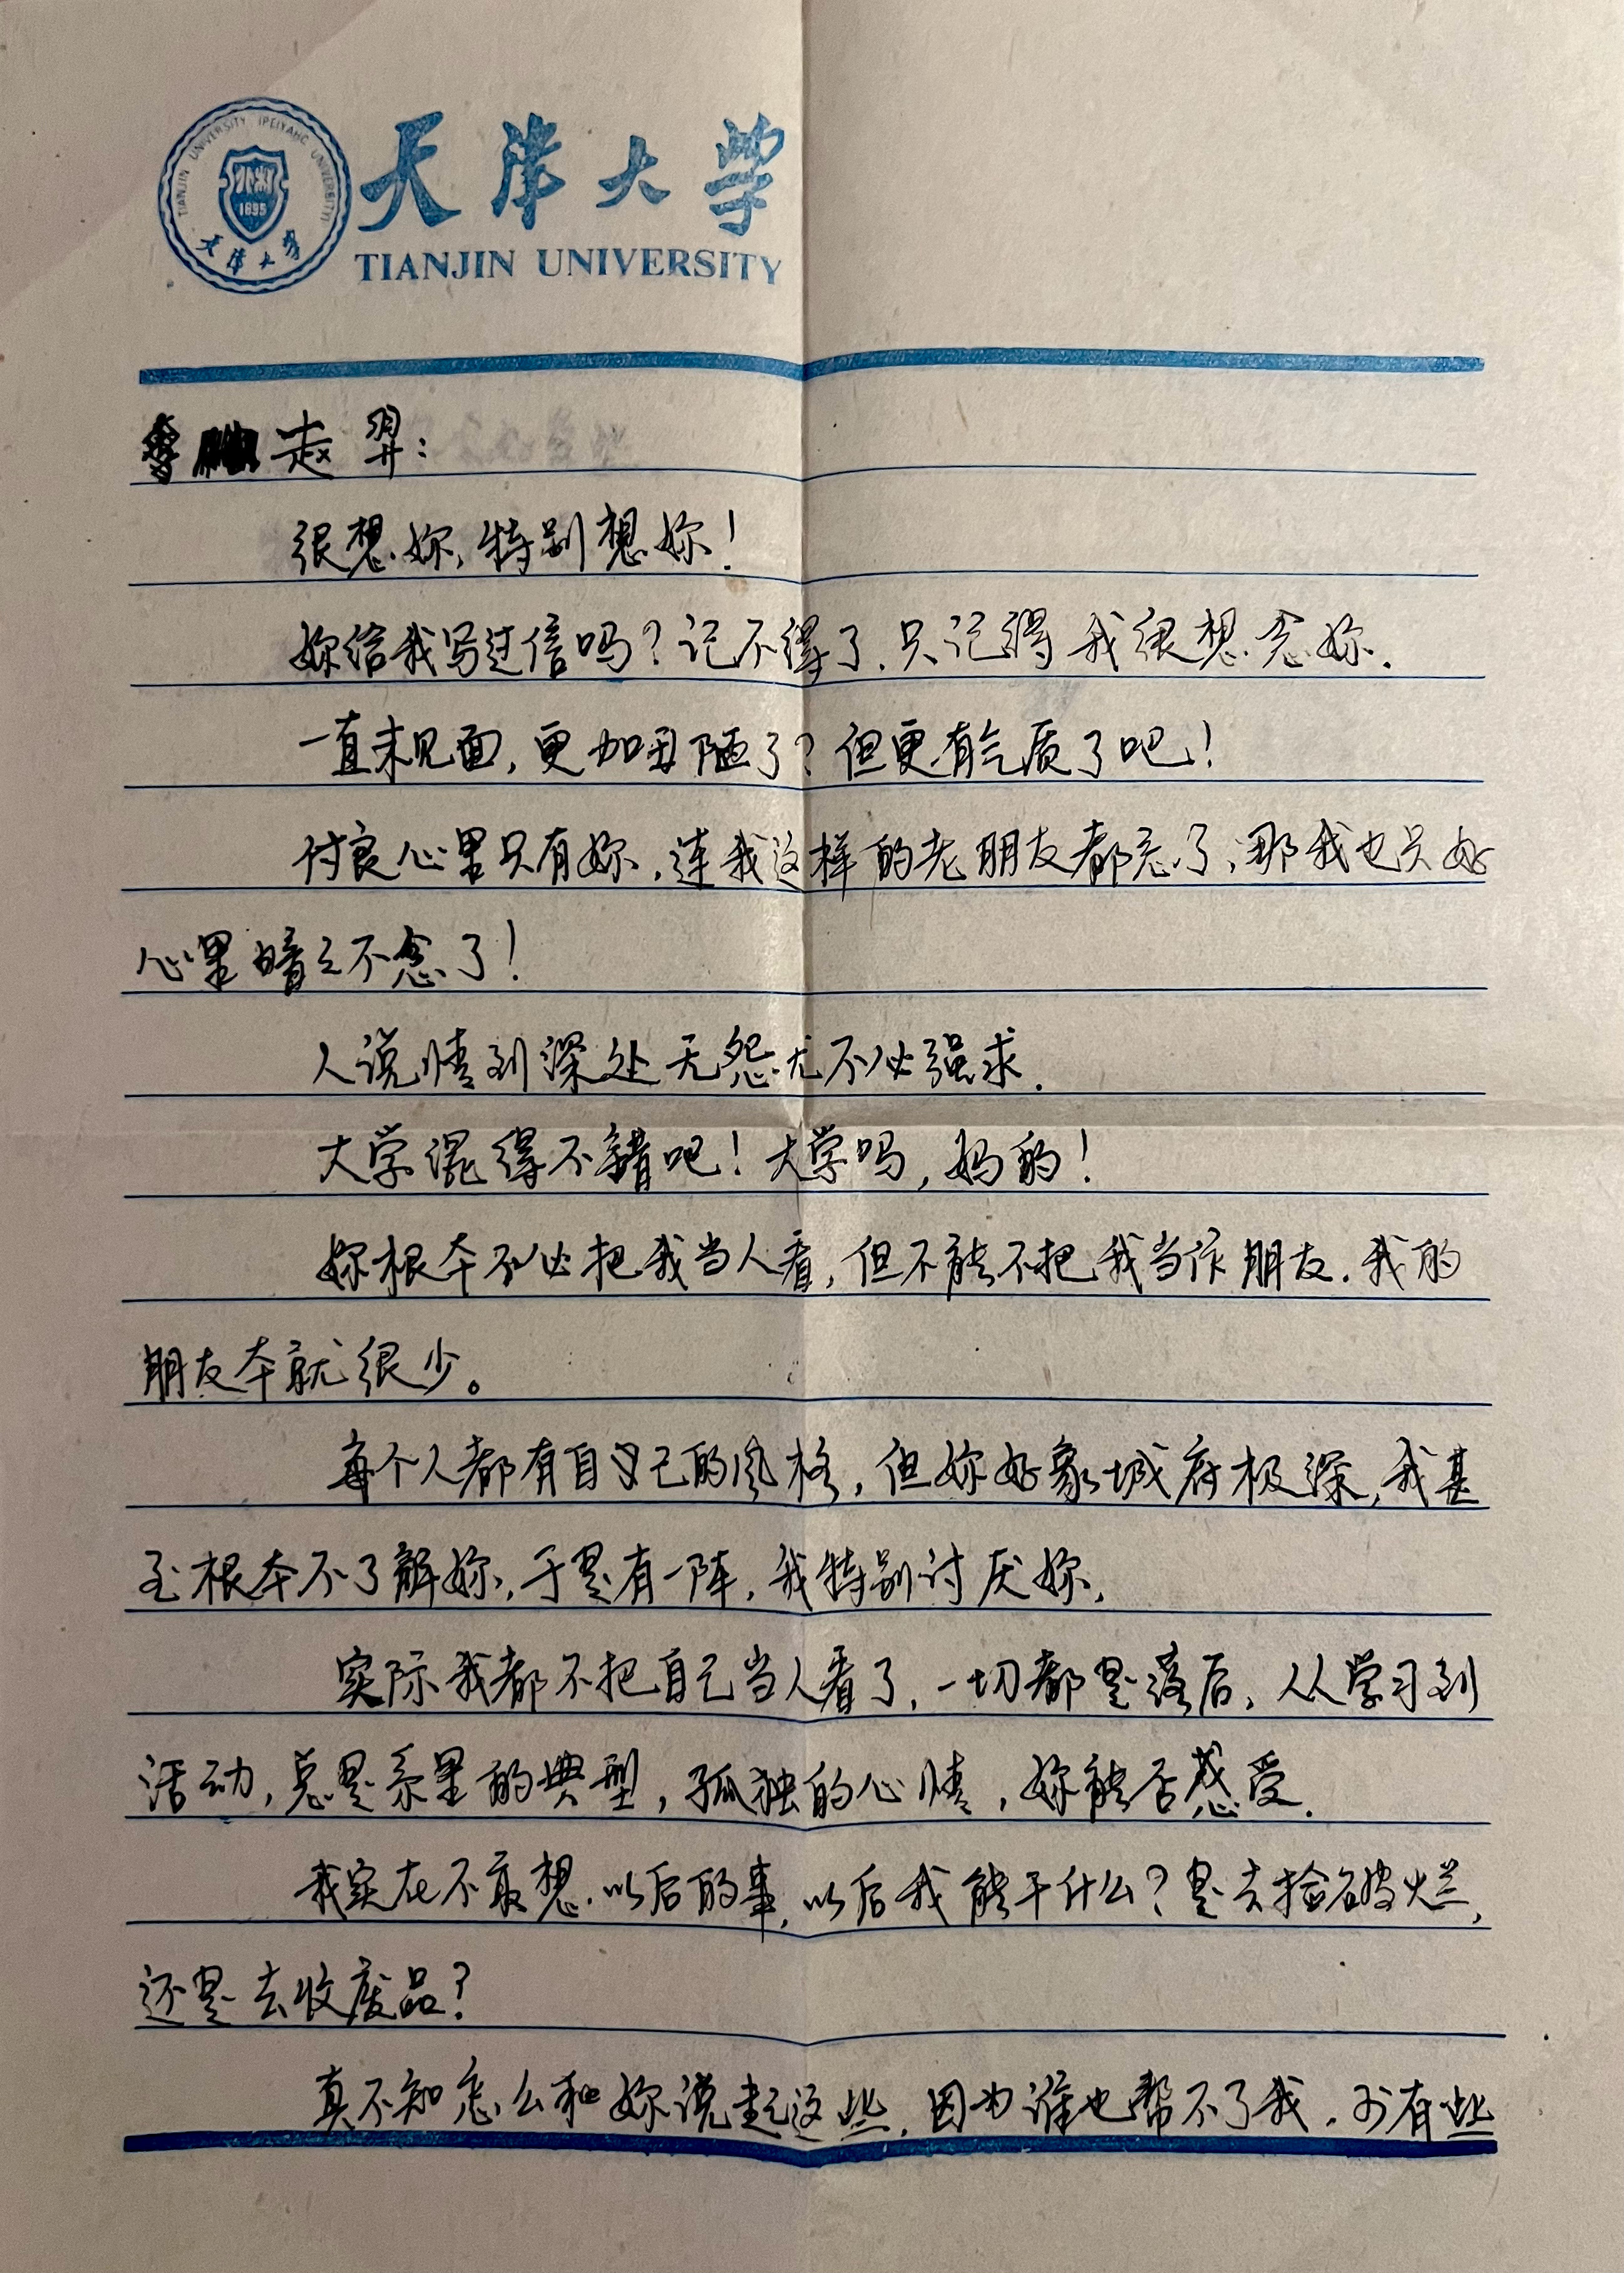 TIANJIN UNIVERSITY (PEIYANG UNIVERSITY)
1895
天津大学
天津大学
TIANJIN UNIVERSITY
赵羿：
很想妳，特别想妳！
妳给我写过信吗？记不得了．只记得我很想念妳．
一直未见面，更加丑陋了？但更有气质了吧！
付良心里只有妳．连我这样的老朋友都忘了、那我也只好
心里暗々不念了！
人说情到深处无怨尤不必强求．
大学混得不错吧！大学吗，妈的！
妳根本不必把我当人看，但不能不把我当作朋友．我的
朋友本就很少。
每个人都有自己的风格，但妳好象城府极深，我甚
至根本不了解妳，于是有一阵，我特别讨厌妳，
实际我都不把自己当人看了，一切都是落后，从学习到
活动，总是系里的典型，孤独的心情，妳能否感受．
我实在不敢想．以后的事，以后我能干什么？是去捡破烂，
还是去收废品？
真不知怎么和妳说起这些．因为谁也帮不了我．少有些